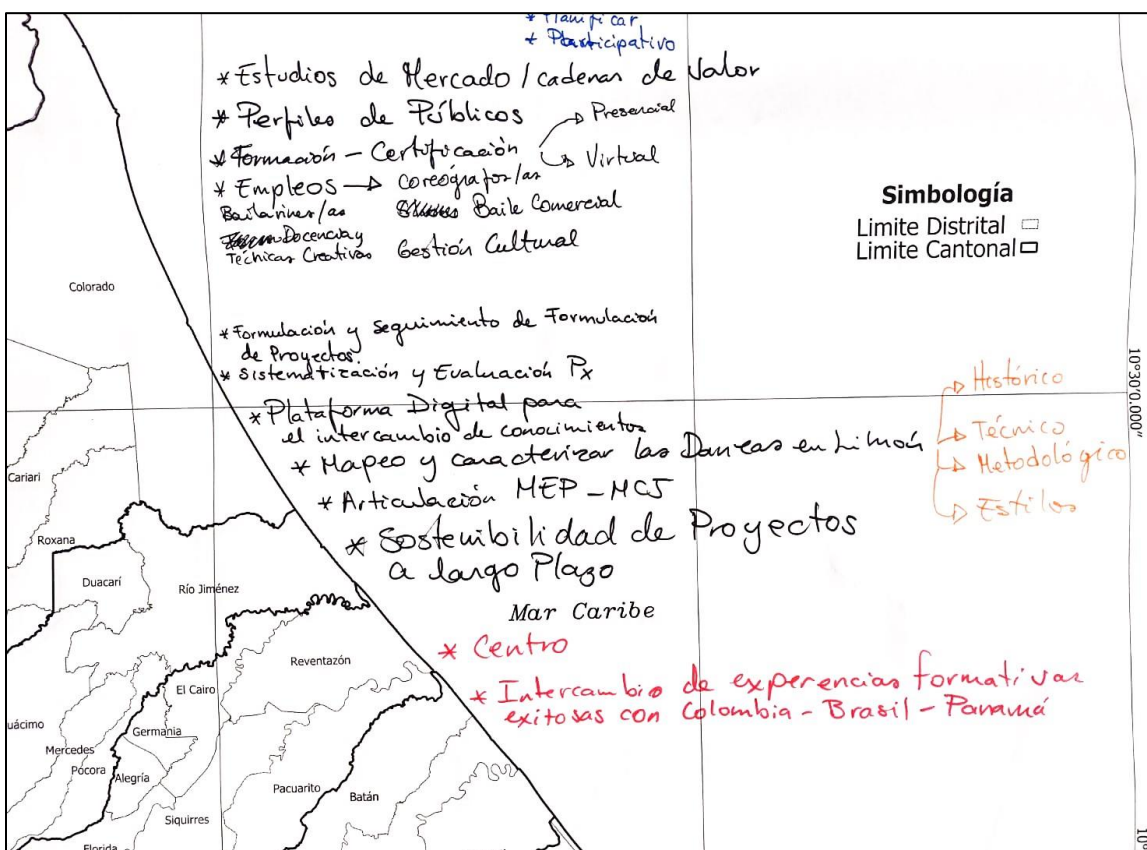 * Planificar
* Participativo
* Estudios de Mercado / cadenas de Valor
* Perfiles de Públicos
Presencial
* Formación - Certificación
Virtual
* Empleos → Coreógrafos/as
Bailarines/as
Baile Comercial
Docencia y
Técnicas Creativas
Gestión Cultural
Simbología
Limite Distrital
Limite Cantonal
Colorado
* Formulación y seguimiento de Formulación
de Proyectos
* Sistematización y Evaluación Px
10°30'0.000"
* Plataforma Digital para
el intercambio de conocimientos
* Mapeo y caracterizar las Danzas en Limón
Histórico
Técnico
Metodológico
Estilos
* Articulación MEP - MCJ
* Sostenibilidad de Proyectos
a largo Plazo
Cariari
Roxana
Duacarí
Río Jiménez
Mar Caribe
* Centro
* Intercambio de experencias formativas
exitosas con Colombia - Brasil - Panamá
Reventazón
El Cairo
uácimo
Germania
Mercedes
Pócora
Alegría
Pacuarito
Batán
Siquirres
Florida
10°